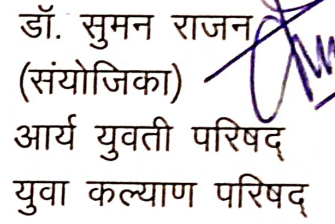 डॉ. सुमन राजन
(संयोजिका)
आर्य युवती परिषद्
युवा कल्याण परिषद्